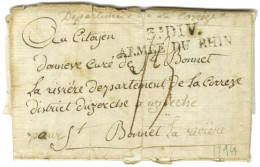 Departement de la Correze
3e DIV.
ARMÉE DU RHIN
Au Citoyen
Curé de St Bonnet
la rivière departement de la correze
district duzerche a uzerche
pour St Bonnet la riviere